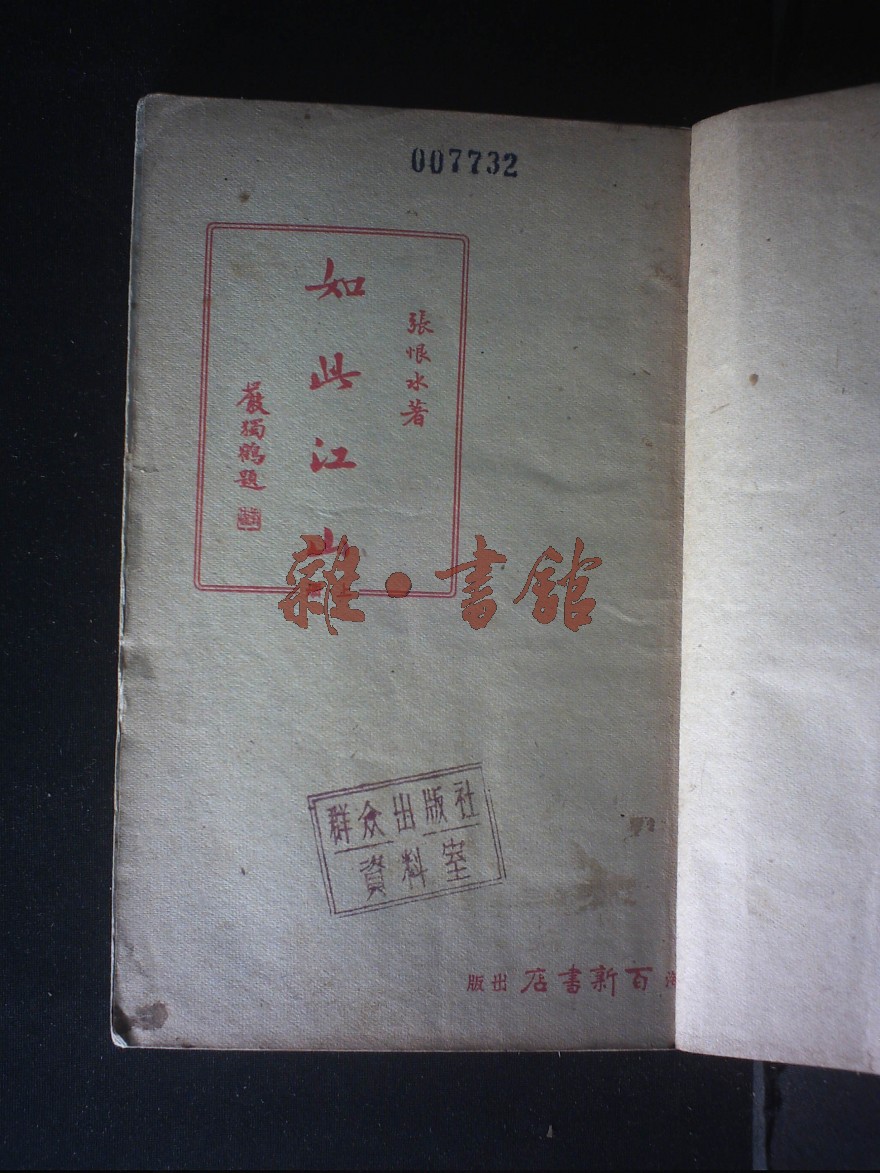 007732
張恨水著
如此江山
嚴獨鶴題
雜·書館
群众出版社
資料室
百新書店出版